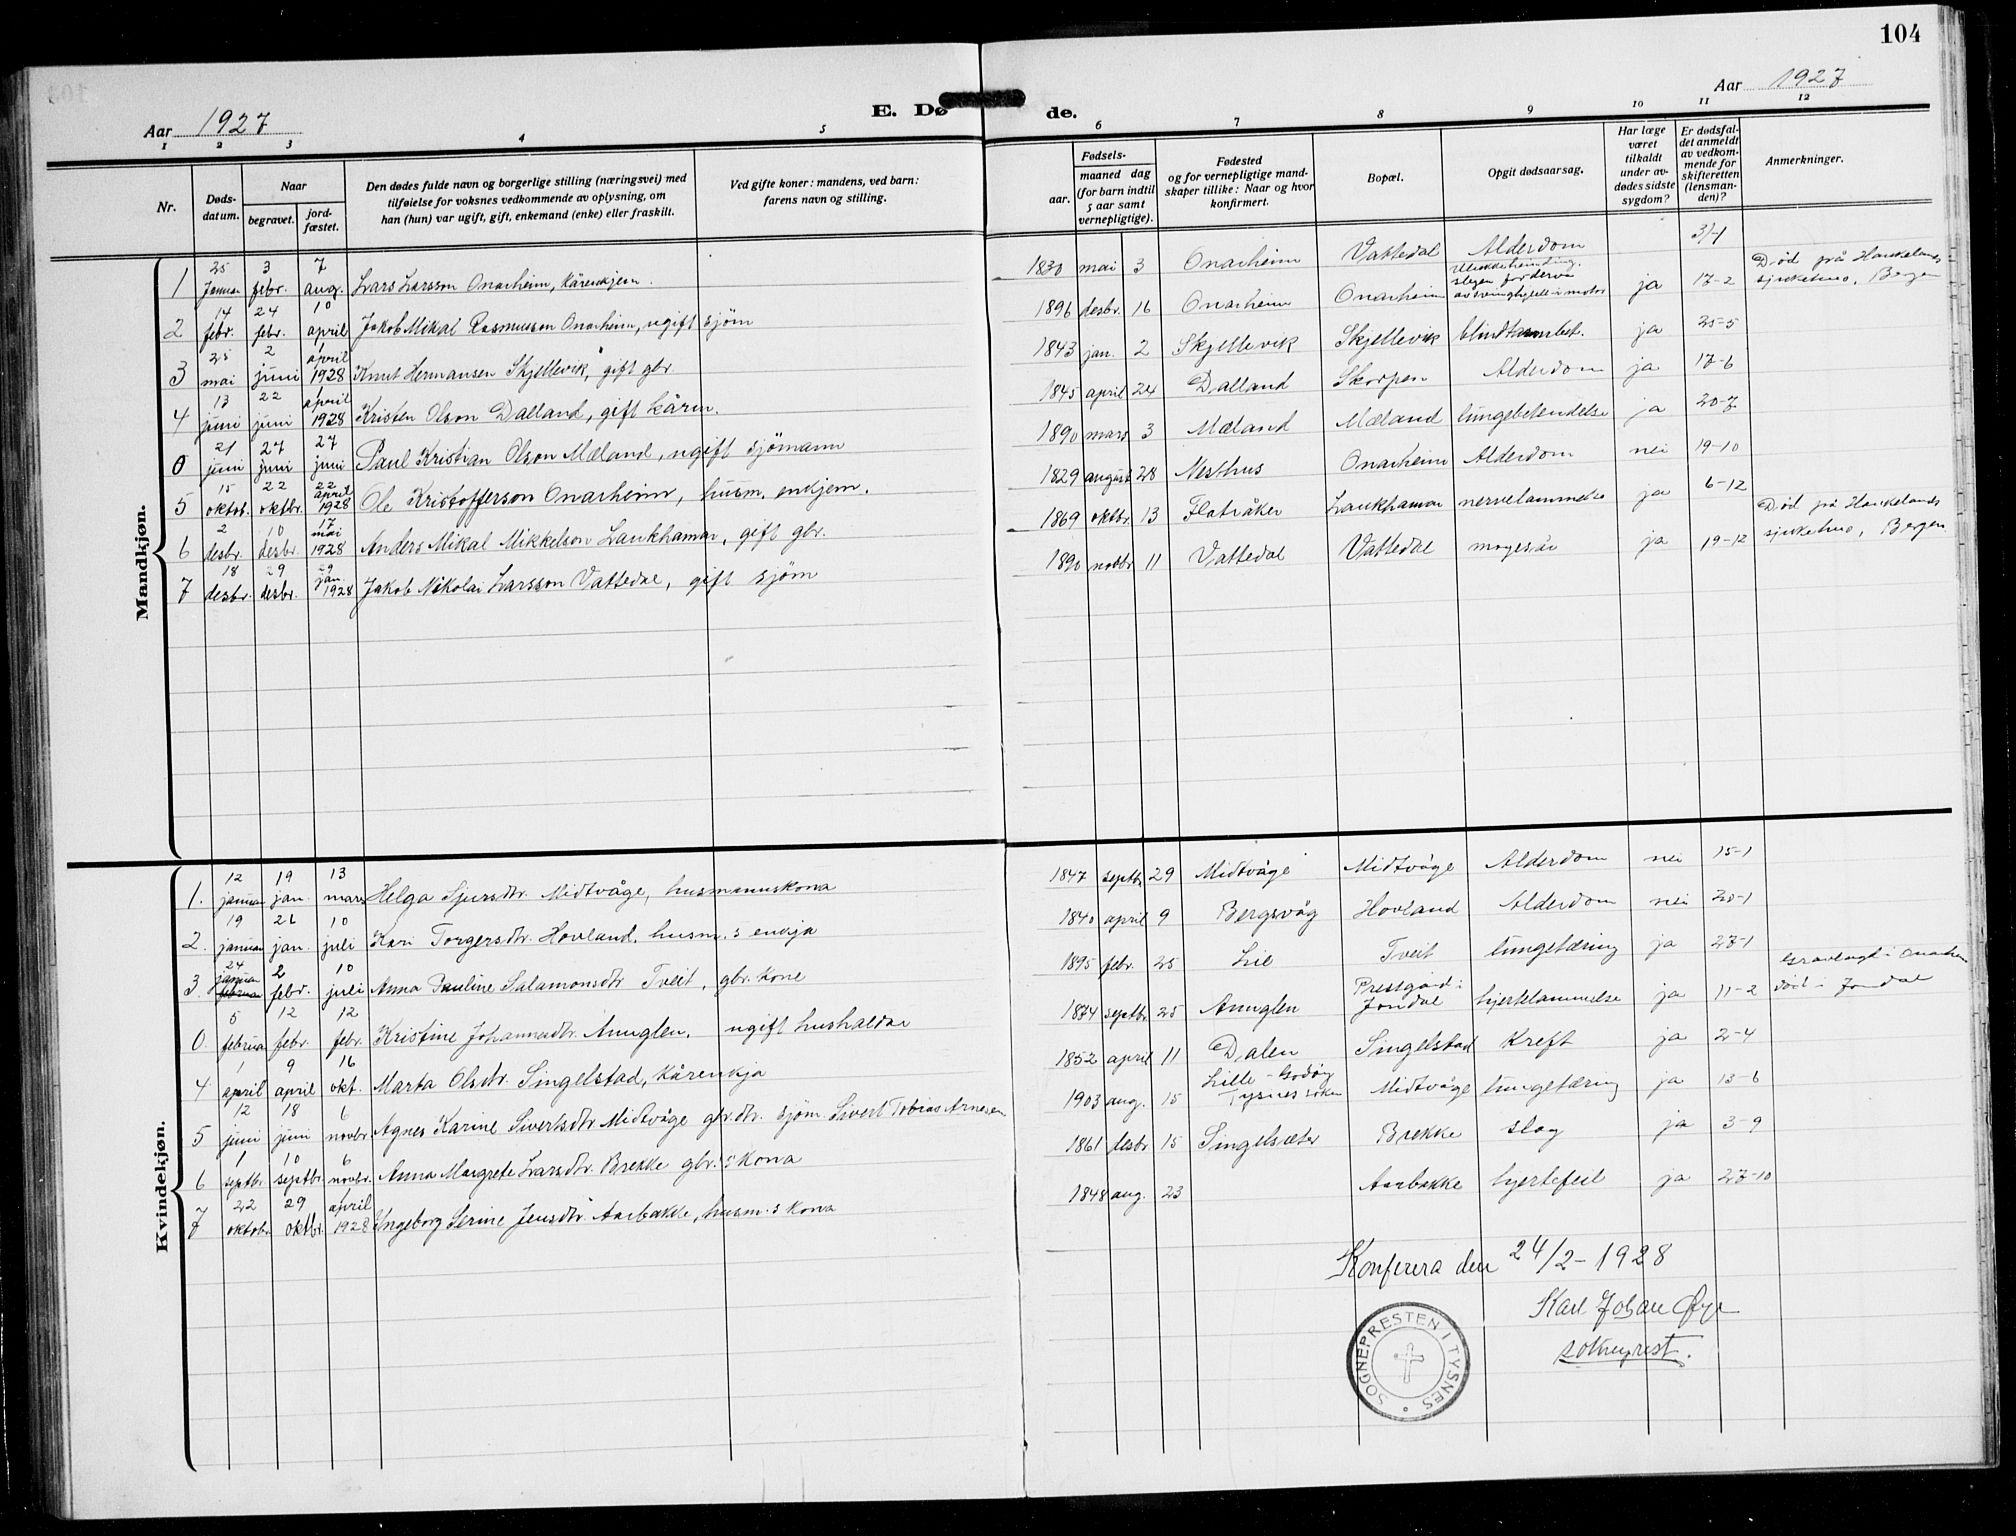 104
Aar 1927
E. Dø de.
Aar 1927
1 2 3 4 5 6 7 8 9 10 11 12
Nr.
Døds-datum.
Naar
begravet.
jord-fæstet.
Den dødes fulde navn og borgerlige stilling (næringsvei) med
tilføielse for voksnes vedkommende av oplysning, om
han (hun) var ugift, gift, enkemand (enke) eller fraskilt.
Ved gifte koner: mandens, ved barn:
farens navn og stilling.
Fødsels-
aar.
maaned dag
(for barn indtil
5 aar samt
vernepligtige).
Fødested
og for vernepligtige mand-
skaper tillike: Naar og hvor
konfirmert.
Bopæl.
Opgit dødsaarsag.
Har læge
været
tilkaldt
under av-
dødes sidste
sygdom?
Er dødsfal-
det anmeldt
av vedkom-
mende for
skifteretten
(lensman-
den)?
Anmerkninger.
Mandkjøn.
1 25 januar 3 febr. 7 aug. Lars Larsson Onarheim, kårenkjem. 1830 mai 3 Onarheim Vattedal Alderdom 3/-1
2 14 febr. 24 febr. 10 april Jakob Mikal Rasmusson Onarheim, ugift sjöm 1896 desbr. 16 Onarheim Onarheim slegen forderva av svinghjulet i motor ja 17-2 Död på Haukelands sjukehus, Bergen
3 25 mai 2 juni 1 april 1928 Knut Hermansen Skjellevik, gift gbr. 1843 jan. 2 Skjellevik Skjellevik blindtarmbet. ja 25-5
4 13 juni 22 juni 1 april 1928 Kristen Olson Dalland, gift kårm. 1845 april 24 Dalland Skorpen Alderdom ja 17-6
0 21 juni 27 juni 27 juni Paul Kristian Olson Mæland, ugift sjömann 1890 mars 3 Mæland Mæland lungebetendelse ja 20-7
5 15 oktob. 22 oktbr. 22 april 1928 Ole Kristofferson Onarheim, husm. enkjem. 1829 august 28 Nesthus Onarheim Alderdom nei 19-10
6 2 desbr. 10 desbr. 17 mai 1928 Anders Mikal Mikkelson Laukhamar, gift gbr. 1869 oktbr. 13 Flatråker Laukhamar nervelammelse ja 6-12
7 18 desbr. 29 desbr. 29 jan. 1928 Jakob Nikolai Larsson Vattedal, gift sjöm 1890 novbr 11 Vattedal Vattedal magesår ja 19-12 Död på Haukelands sjukehus, Bergen
Kvindekjøn.
1. 12 januar 19 jan. 13 mars Helga Sjursdtr. Midtvåge, husmannskona 1847 septbr 29 Midtvåge Midtvåge Alderdom nei 15-1
2. 19 januar 26 jan. 10 juli Kari Torgersdtr. Hovland, husm.s enkja 1840 april 9 Bergsvåg Hovland Alderdom nei 20-1
3 24 januar februar 2 febr. 10 juli Anna Pauline Salamonsdtr Tveit, gbr. kone 1895 febr. 25 Lie Tveit lungetæring ja 27-1
0. 5 februar 12 febr. 12 febr. Kristine Johannesdtr. Anuglen. ugift husholdar 1874 septbr 25 Anuglen Prestgård i Jondal hjertelammelse ja 11-2 Gravlagt i Onarheim död i Jondal
4 1 april 9 april 16 okt. Marta Olsdtr. Singelstad, kårenkja 1852 april 11 Dalen Singelstad Kreft ja 2-4
5 12 juni 18 juni 6 novbr. Agnes Karine Sivertsdtr Midtvåge gbr. dtr. sjöm. Sivert Tobias Arnesen 1903 aug. 15 Lille-Godöy Tysnes sokn Midtvåge lungetæring ja 13-6
6 1 septbr. 10 septbr. 6 novbr. Anna Margrete Larsdtr. Brekke gbr.'s kona 1861 desbr 15 Singelsæter Brekke slag ja 3-9
7 22 oktobr. 29 oktbr. 1 april 1928 Ingeborg Serine Jensdtr. Aarbakke, husm.s kona 1848 aug. 23 Aarbakke hjertefeil ja 27-10
Konferera den 24/2-1928
Karl Johan Øye
sokneprest.
SOGNEPRESTEN I TYSNES